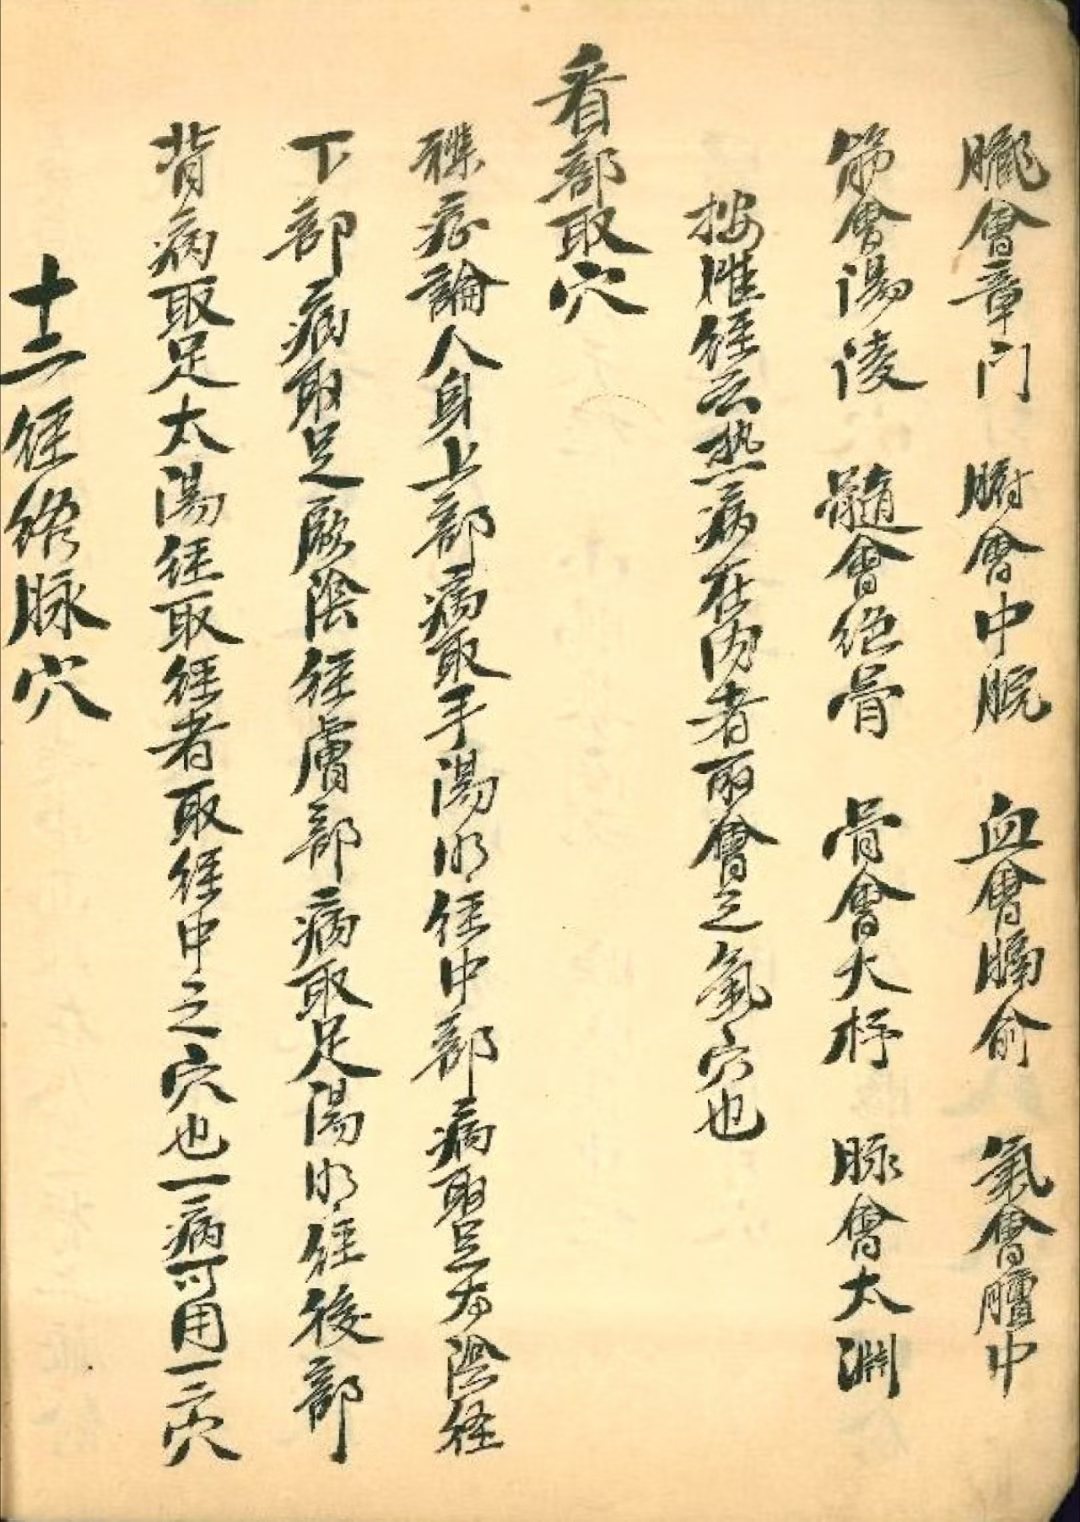 臓會章门 腑會中脘 血會膈俞 氣會膻中
筋會陽陵 髓會绝骨 骨會大杼 脉會太渊
按难経云热病在内者取會之氣穴也
看部取穴
雜症論人身上部病取手陽明経中部病取足太陰経
下部病取足厥陰経膚部病取足陽明経後部
背病取足太陽経取経者取経中之穴也一病可用一二穴
十二経络脉穴